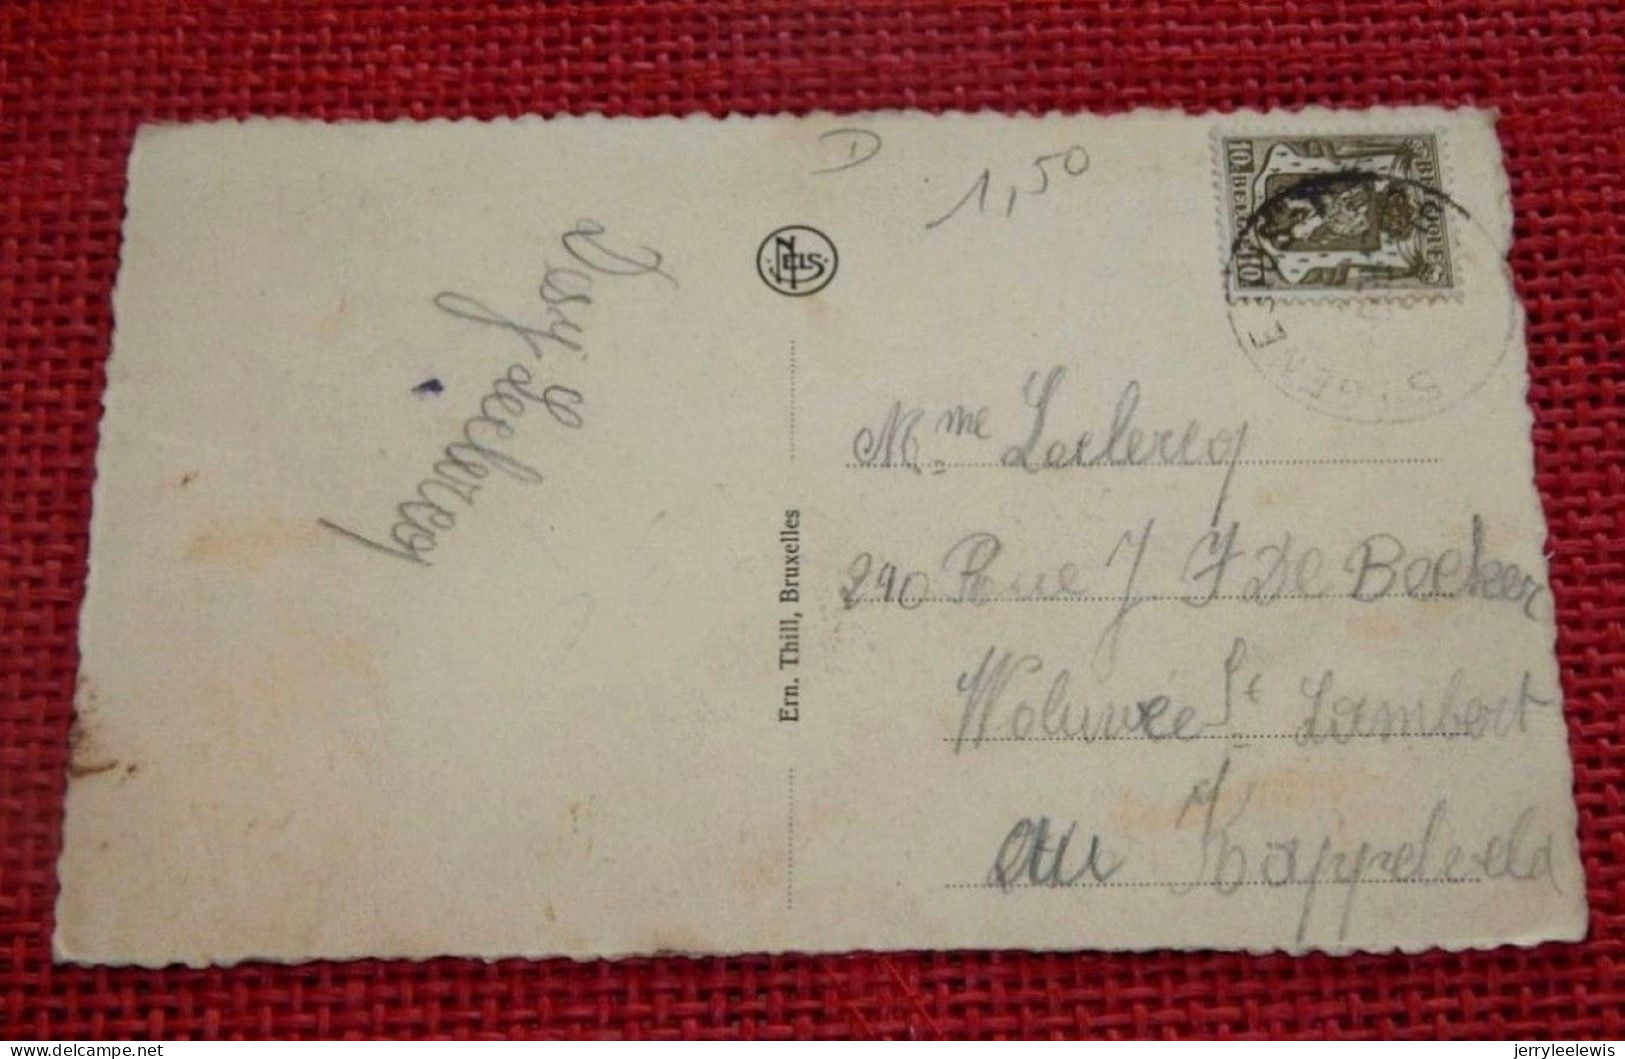 D
1,50
NELS
10c BELGIQUE
10c BELGIE
S-GENES
Leclercq
Ern. Thill, Bruxelles
Mme Leclercq
290 Rue J F De Becker
Woluwée St Lambert
au Kappelveld
delcampe.net
jerryleelewis